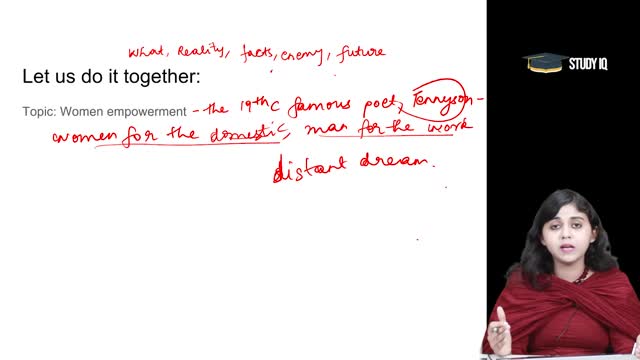 what, Reality, facts, enemy, future
Let us do it together:
STUDY IQ
Topic: Women empowerment - the 19th C famous poet, Tennyson-
women for the domestic, man for the work
distant dream.